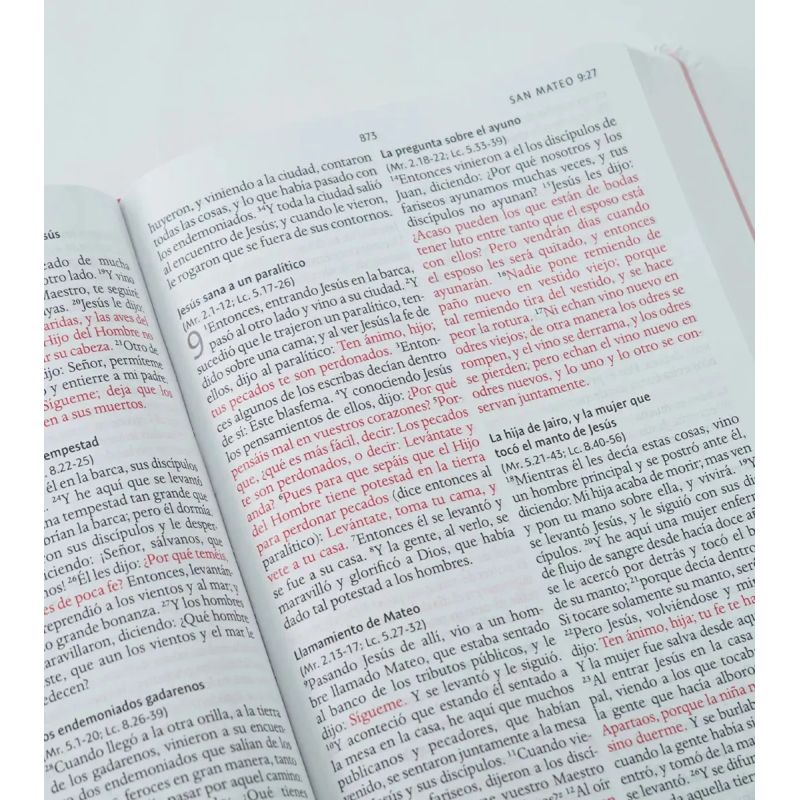 ús
eado de mucha
otro lado. ¹⁹Y vino
Maestro, te seguiré
yas. ²⁰Jesús le dijo:
aridas, y las aves del
Hijo del Hombre no
ar su cabeza. ²¹Otro de
dijo: Señor, permíteme
y entierre a mi padre.
Sígueme; deja que los
en a sus muertos.
empestad
8.22-25)
él en la barca, sus discípulos
²⁴Y he aquí que se levantó
una tempestad tan grande que
orían la barca; pero él dormía.
on sus discípulos y le desper-
ciendo: ¡Señor, sálvanos, que
os! ²⁶Él les dijo: ¿Por qué teméis,
es de poca fe? Entonces, levantán-
eprendió a los vientos y al mar; y
o grande bonanza. ²⁷Y los hombres
aravillaron, diciendo: ¿Qué hombre
ste, que aun los vientos y el mar le
edecen?
os endemoniados gadarenos
(Mr. 5.1-20; Lc. 8.26-39)
²⁸Cuando llegó a la otra orilla, a la tierra
de los gadarenos, vinieron a su encuen-
dos endemoniados que salían de los
feroces en gran manera, tanto
pasar por aquel camino.
¿Qué tienes
873
SAN MATEO 9:27
huyeron, y viniendo a la ciudad, contaron
todas las cosas, y lo que había pasado con
los endemoniados. ³⁴Y toda la ciudad salió
al encuentro de Jesús; y cuando le vieron,
le rogaron que se fuera de sus contornos.
Jesús sana a un paralítico
(Mr. 2.1-12; Lc. 5.17-26)
9 ¹Entonces, entrando Jesús en la barca,
pasó al otro lado y vino a su ciudad. ²Y
sucedió que le trajeron un paralítico, ten-
dido sobre una cama; y al ver Jesús la fe de
ellos, dijo al paralítico: Ten ánimo, hijo;
tus pecados te son perdonados. ³Enton-
ces algunos de los escribas decían dentro
de sí: Este blasfema. ⁴Y conociendo Jesús
los pensamientos de ellos, dijo: ¿Por qué
pensáis mal en vuestros corazones? ⁵Por-
que, ¿qué es más fácil, decir: Los pecados
te son perdonados, o decir: Levántate y
anda? ⁶Pues para que sepáis que el Hijo
del Hombre tiene potestad en la tierra
para perdonar pecados (dice entonces al
paralítico): Levántate, toma tu cama, y
vete a tu casa. ⁷Entonces él se levantó y
se fue a su casa. ⁸Y la gente, al verlo, se
maravilló y glorificó a Dios, que había
dado tal potestad a los hombres.
Llamamiento de Mateo
(Mr. 2.13-17; Lc. 5.27-32)
⁹Pasando Jesús de allí, vio a un hom-
bre llamado Mateo, que estaba sentado
al banco de los tributos públicos, y le
dijo: Sígueme. Y se levantó y le siguió.
¹⁰Y aconteció que estando él sentado a
la mesa en la casa, he aquí que muchos
publicanos y pecadores, que habían
venido, se sentaron juntamente a la mesa
con Jesús y sus discípulos. ¹¹Cuando vie-
fariseos, dijeron a los discí-
vuestro Maestro
¹²Al oír
La pregunta sobre el ayuno
(Mr. 2.18-22; Lc. 5.33-39)
¹⁴Entonces vinieron a él los discípulos de
Juan, diciendo: ¿Por qué nosotros y los
fariseos ayunamos muchas veces, y tus
discípulos no ayunan? ¹⁵Jesús les dijo:
¿Acaso pueden los que están de bodas
tener luto entre tanto que el esposo está
con ellos? Pero vendrán días cuando
el esposo les será quitado, y entonces
ayunarán. ¹⁶Nadie pone remiendo de
paño nuevo en vestido viejo; porque
tal remiendo tira del vestido, y se hace
peor la rotura. ¹⁷Ni echan vino nuevo en
odres viejos; de otra manera los odres se
rompen, y el vino se derrama, y los odres
se pierden; pero echan el vino nuevo en
odres nuevos, y lo uno y lo otro se con-
servan juntamente.
La hija de Jairo, y la mujer que
tocó el manto de Jesús
(Mr. 5.21-43; Lc. 8.40-56)
¹⁸Mientras él les decía estas cosas, vino
un hombre principal y se postró ante él,
diciendo: Mi hija acaba de morir; mas ven
y pon tu mano sobre ella, y vivirá. ¹⁹Y
se levantó Jesús, y le siguió con sus dis
cípulos. ²⁰Y he aquí una mujer enferm
de flujo de sangre desde hacía doce añ
se le acercó por detrás y tocó el b
de su manto; ²¹porque decía dentro
Si tocare solamente su manto, seré
²²Pero Jesús, volviéndose y mi
dijo: Ten ánimo, hija; tu fe te ha
Y la mujer fue salva desde aqu
²³Al entrar Jesús en la casa
pal, viendo a los que tocab
la gente que hacía alboro
Apartaos, porque la niña n
sino duerme. Y se burlab
cuando la gente había si
entró, y tomó de la man
se levantó. ²⁶Y se difun
aquella tier